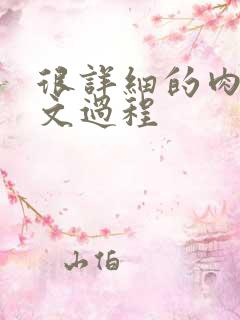 很詳細的肉
文過程
山伯